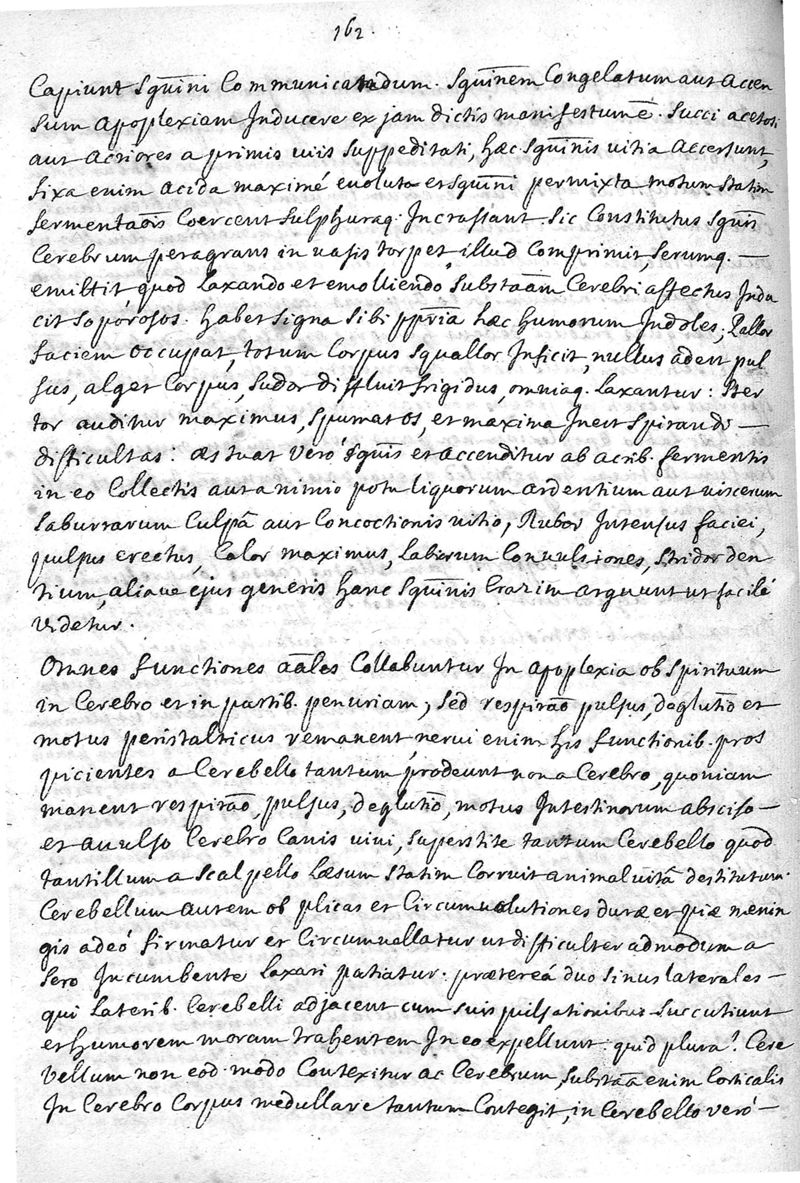 162.
Capiunt sguīni Communicandum. Sguīnem Congelatum aut Accen
sum Apoplexiam Inducere ex jam dictis manifestum ē. Succi acetosi
aut Acriores a primis viis suppeditati, hæc sguīnis vitia Accersunt,
fixa enim acida maximé evoluta et sguīni permixta motum statim
fermentaōis Coercent sulphuraq. Incrassant. Sic Constitutus sguīs
Cerebrum peragrans in uasis torpet illud Comprimit, serumq. —
emittit quod laxando et emolliendo substaām Cerebri affectus Indu
cit soporosos. habet signa sibi pp̄ria hæc humorum Indoles; Pallor
faciem occupat, totum Corpus squallor Inficit, nullus adest pul
sus, alget Corpus, sudor diffluit frigidus, omniaq. laxantur: Ster
tor auditur maximus, spumat os, et maxima Inest spirandi —
difficultas: æstuat veró sguīs et accenditur ab acrib. fermentis
in eo Collectis aut a nimio potu liquorum ardentium aut viscerum
saburrarum Culpâ aut Concoctionis vitio, Rubor Intensus faciei,
pulsus erectus, Calor maximus, labiorum Convulsiones, stridor den
tium, aliave ejus generis hanc sguīnis Crazim arguunt ut facilé
videtur.
Omnes functiones aāles Collabuntur In apoplexia ob spirituum
in Cerebro et in partib. penuriam, sed respiraō pulsus, deglutiō et
motus peristalticus remanent, nervi enim his functionib. pros
picientes a Cerebello tantum prodeunt non a Cerebro, quoniam
manent respiraō, pulsus, deglutiō, motus Intestinorum absciso —
et avulso Cerebro Canis vivi, superstite tantum Cerebello quod
tantillum a scalpello læsum statim Corruit animal vitâ destitutum.
Cerebellum autem ob plicas et Circumvolutiones duræ et piæ menin
gis adeó firmatur et Circumvallatur ut difficulter admodum a
sero Incumbente laxari patiatur: prætereá duo sinus laterales —
qui laterib. Cerebelli adjacent cum suis pulsationibus succutiunt
et humorem moram trahentem In eo expellunt: quid plura? Cere
vellum non eod. modo Contexitur ac Cerebrum, substaā enim Corticalis
In Cerebro Corpus medullare tantum Contegit, in Cerebello veró —